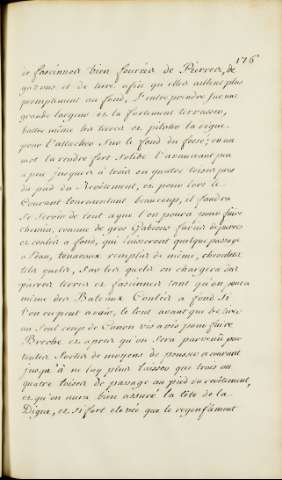 176
de fascinnes bien fourées de Pierres, de
gazons et de terre afin qu'elles aillent plus
promptement au fond, l'entreprendre sur une
grande largeur et la fortement terrasser,
battre même les terres et piloter la digue
pour l'attacher sur le fond du fossé; en un
mot la rendre fort solide l'avançant peu
a peu jusques à trois ou quatre toises près
du pied du Revêtement, et pour lors le
Courant tourmentant beaucoup, il faudra
se servir de tout ce que l'on pourra pour faire
chemin, comme de gros Gabions farcis de pierres
et coulés a fond, qui laisseront quelque passage
a l'eau, tonneaux remplis de même, chevalets
tels quels, sur les quels on chargera des
pierres terres et fascinnes tant qu'on poura
même des Bateaux Coulés a fond si
l'on en peut avoir, le tout avant que de tirer
un seul coup de Canon vis a vis pour faire
Breche et après qu'on sera parvenu par
toutes sortes de moyens de pousser en avant
jusqu'à n'y plus laisser que trois ou
quatre toises de passage au pied du revêtement,
et qu'on aura bien assuré la tête de la
Digue, et si fort élevée que le regonflement